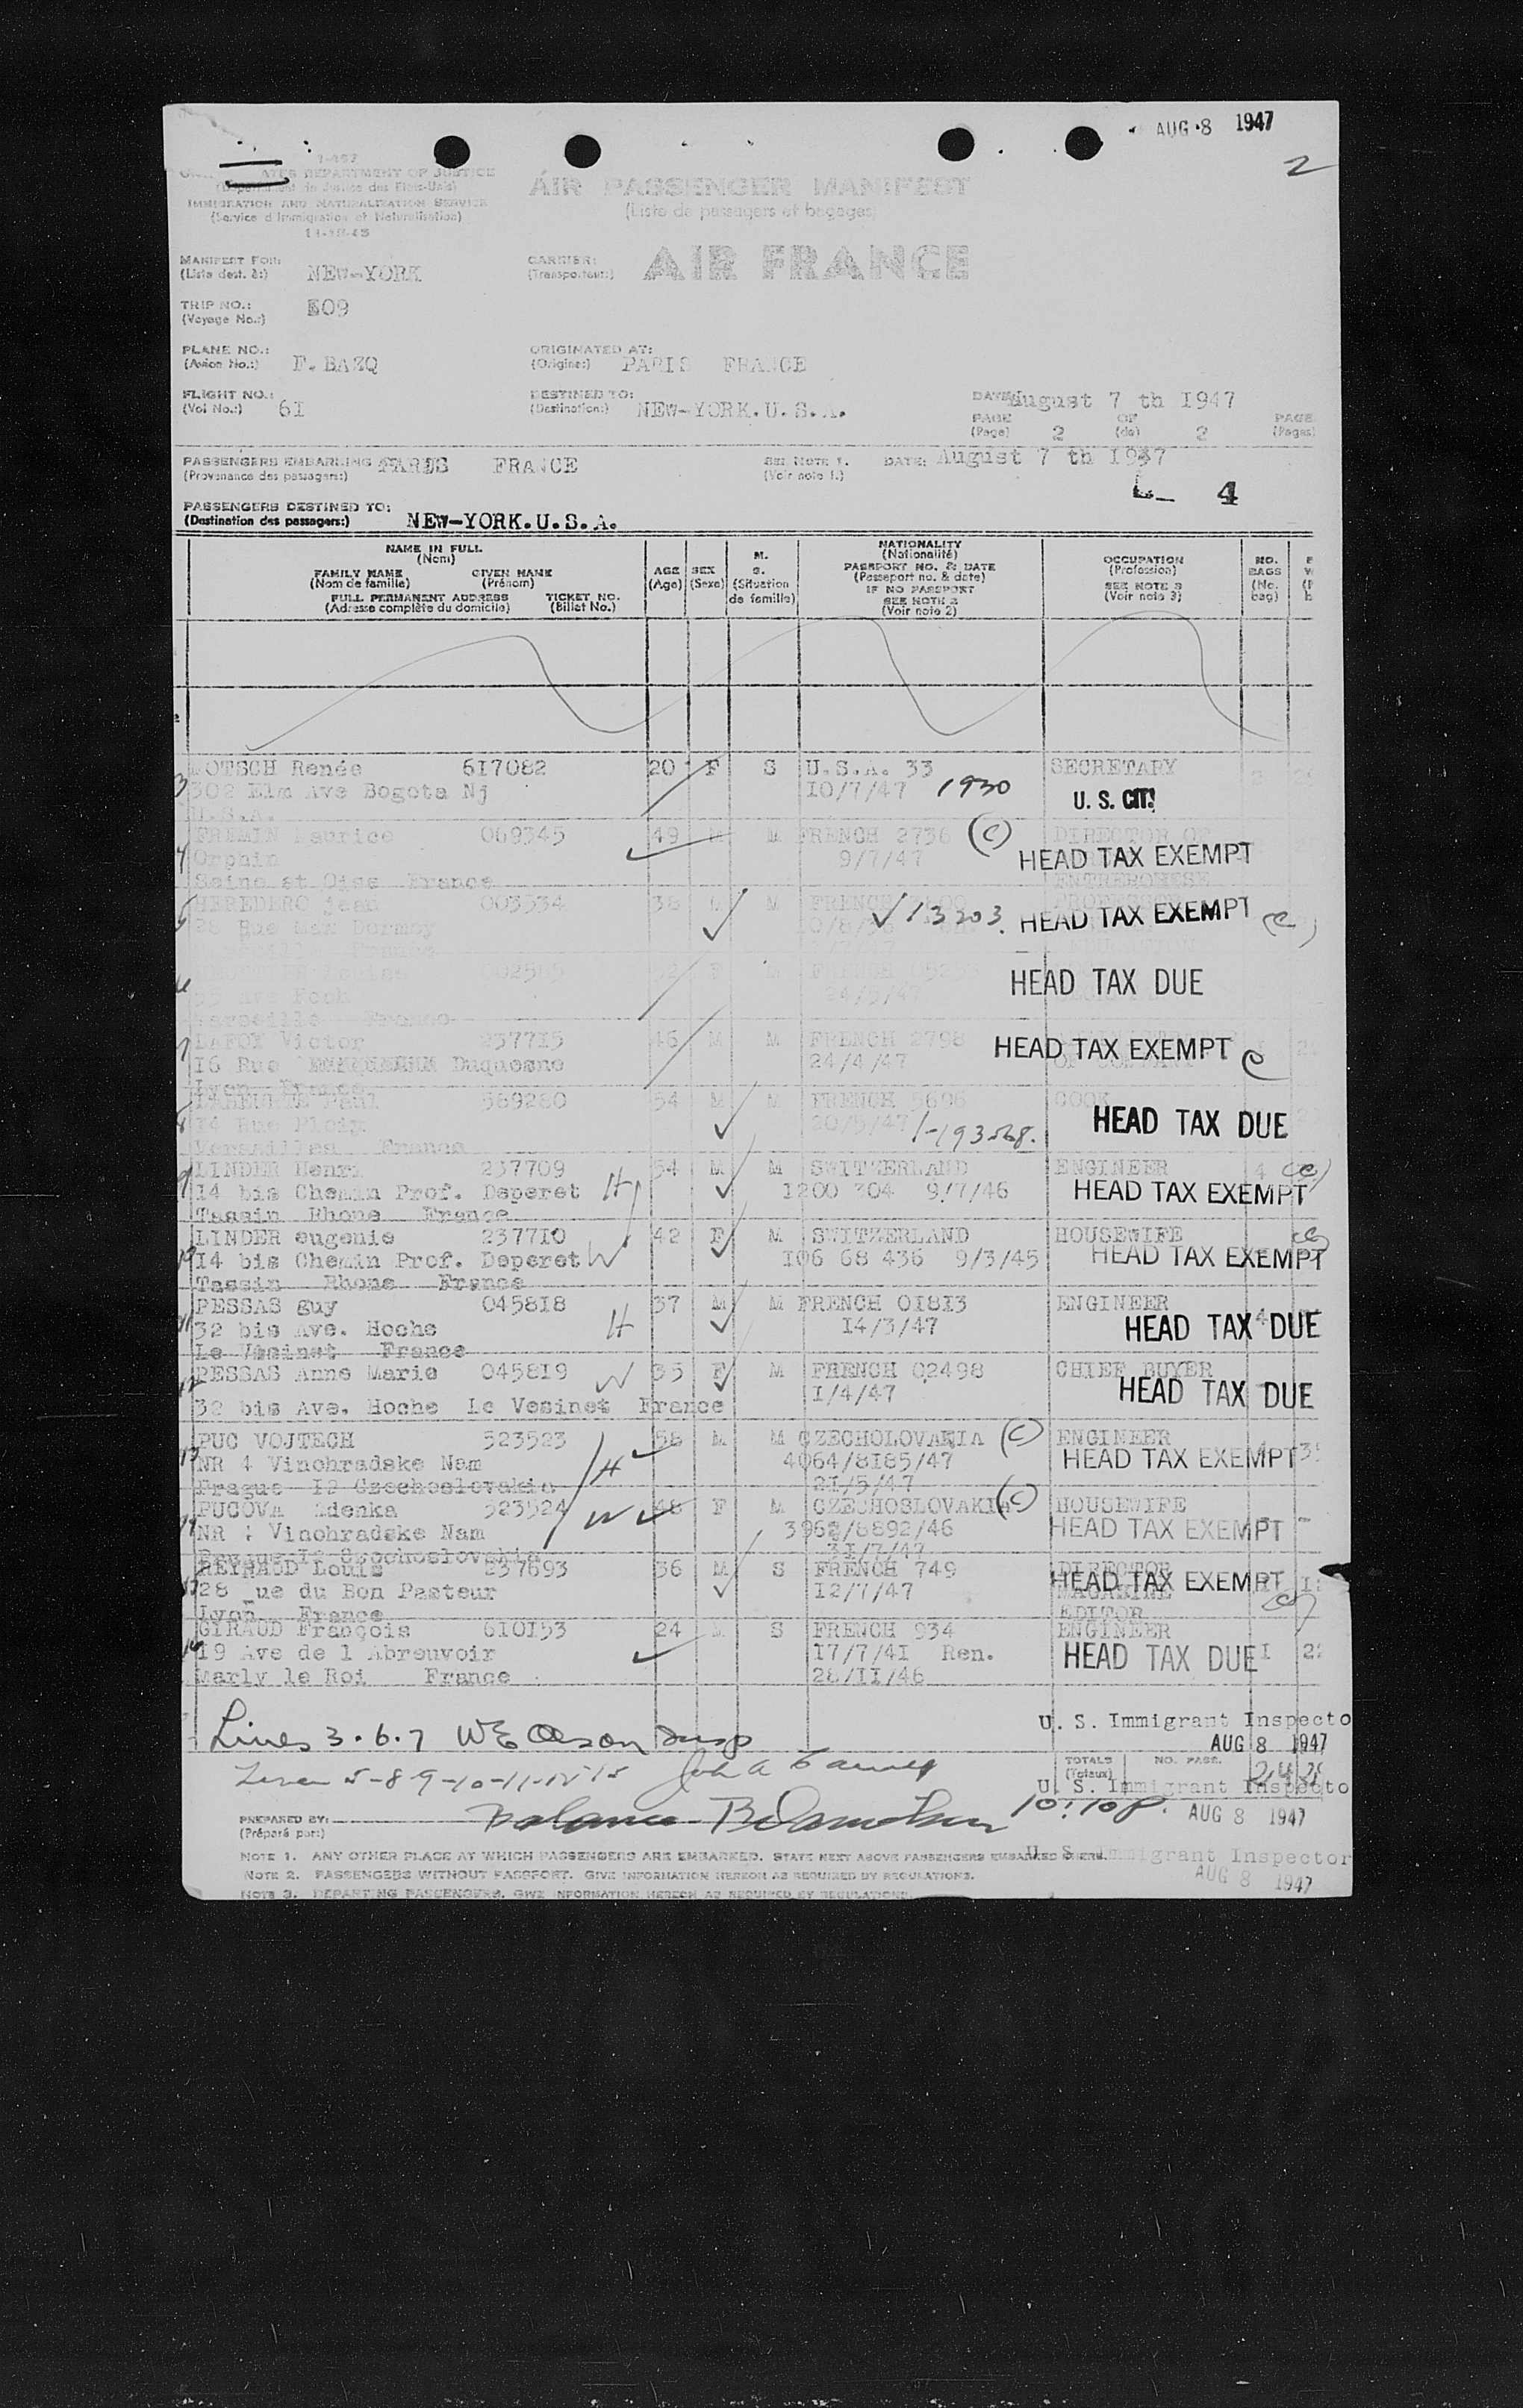 AUG 8 1947
2
1-467
ATES DEPARTMENT OF JUSTICE
(Département de Justice des Etats-Unis)
IMMIGRATION AND NATURALIZATION SERVICE
(Service d Immigration et Naturalisation)
11-18-45
AIR PASSENGER MANIFEST
(Liste de passagers et bagages)
MANIFEST FOR:
(Liste dest. à:)
NEW-YORK
CARRIER:
(Transporteur:)
AIR FRANCE
TRIP NO.:
(Voyage No.:)
E09
PLANE NO.:
(Avion No.:)
F.BAZQ
ORIGINATED AT:
(Origine:)
PARIS FRANCE
FLIGHT NO.:
(Vol No.:)
6I
DESTINED TO:
(Destination:)
NEW-YORK.U.S.A.
DATE August 7 th I947
PAGE 2 OF 2 PAGE
(Page) (de) (Pages)
PASSENGERS EMBARLING PARIS FRANCE
(Provenance des passagers:)
SEE NOTE 1.
(Voir note 1.)
DATE: August 7 th I947
4
PASSENGERS DESTINED TO:
(Destination des passagers:)
NEW-YORK.U.S.A.
NAME IN FULL
(Nom)
FAMILY NAME GIVEN NAME
(Nom de famille) (Prénom)
FULL PERMANENT ADDRESS TICKET NO.
(Adresse complète du domicile) (Billet No.)
AGE
(Age)
SEX
(Sexe)
M.
S.
(Situation
de famille)
NATIONALITY
(Nationalité)
PASSPORT NO. & DATE
(Passeport no. & date)
IF NO PASSPORT
SEE NOTE 2
(Voir note 2)
OCCUPATION
(Profession)
SEE NOTE 3
(Voir note 3)
NO.
BAGS
(No.
bag)
3 OTSCH Renée 6I7082 20 F S U.S.A. 33 SECRETARY
302 Elm Ave Bogota Nj IO/7/47 1930 U. S. CIT.
U.S.A.
4 FREMIN aurice 069345 49 M M FRENCH 2736 (C) DIRECTOR OF
Orphin 9/7/47 HEAD TAX EXEMPT
Seine et Oise France ENTREPRISE
5 HEREDERO jean 003534 38 M FRENCH
Rue Max Dormoy 13203 HEAD TAX EXEMPT (C)
France
6 002505 F M FRENCH
Ave Foch 24/5/47 HEAD TAX DUE
Marseille France
7 LAFOX Victor 237715 46 M M FRENCH 2798
I6 Rue Duquesne 24/4/47 HEAD TAX EXEMPT C
Lyon France
8 Paul 589280 54 M M FRENCH 5696 COOK
I4 Rue Ploix 20/5/47 HEAD TAX DUE
Versailles France
9 LINDER Henri 237709 54 M M SWITZERLAND ENGINEER 4 (C)
I4 bis Chemin Prof. Deperet H I200 304 9/7/46 HEAD TAX EXEMPT
Tassin Rhone France
10 LINDER eugenie 2377I0 42 F M SWITZERLAND HOUSEWIFE
I4 bis Chemin Prof. Deperet W I06 68 436 9/3/45 HEAD TAX EXEMPT
Tassin Rhone France
11 PESSAS guy 0458I8 37 M M FRENCH 0I8I3 ENGINEER
32 bis Ave. Hoche H I4/3/47 HEAD TAX DUE 4
Le Vésinet France
12 PESSAS Anne Marie 0458I9 W 35 F M FRENCH 02498 CHIEF BUYER
I/4/47 HEAD TAX DUE
32 bis Ave. Hoche Le Vesinet France
13 PUC VOJTECH 523523 58 M M CZECHOLOVAKIA (C) ENGINEER
NR 4 Vinohradske Nam H 4064/8I85/47 HEAD TAX EXEMPT
Prague I2 Czechoslovakia 2I/5/47
14 PUCOVA Zdenka 523524 48 F M CZECHOSLOVAKIA (C) HOUSEWIFE
NR 4 Vinohradske Nam W 3962/8892/46 HEAD TAX EXEMPT
Prague I2 Czechoslovakia 3I/7/47
REYNAUD Louis 237693 36 M S FRENCH 749 DIRECTOR
28 ue du Bon Pasteur I2/7/47 HEAD TAX EXEMPT
MAGAZINE
Lyon France EDITOR
GIRAUD François 6I0I53 24 M S FRENCH 934 ENGINEER
I9 Ave de l Abreuvoir I7/7/4I Ren. HEAD TAX DUE I
Marly le Roi France 28/II/46
Lines 3.6.7 W E Olson Insp
U. S. Immigrant Inspecto
AUG 8 1947
TOTALS
(Totaux)
NO. PASS.
U. S. Immigrant Inspecto
Balance
10:10 P. AUG 8 1947
PREPARED BY:
(Préparé par:)
NOTE 1. ANY OTHER PLACE AT WHICH PASSENGERS ARE EMBARKED. STATE NEXT ABOVE PASSENGERS EMBARKED THERE.
U. S. Immigrant Inspector
AUG 8 1947
NOTE 2. PASSENGERS WITHOUT PASSPORT. GIVE INFORMATION HEREON AS REQUIRED BY REGULATIONS.
NOTE 3. DEPARTING PASSENGERS. GIVE INFORMATION HEREON AS REQUIRED BY REGULATIONS.